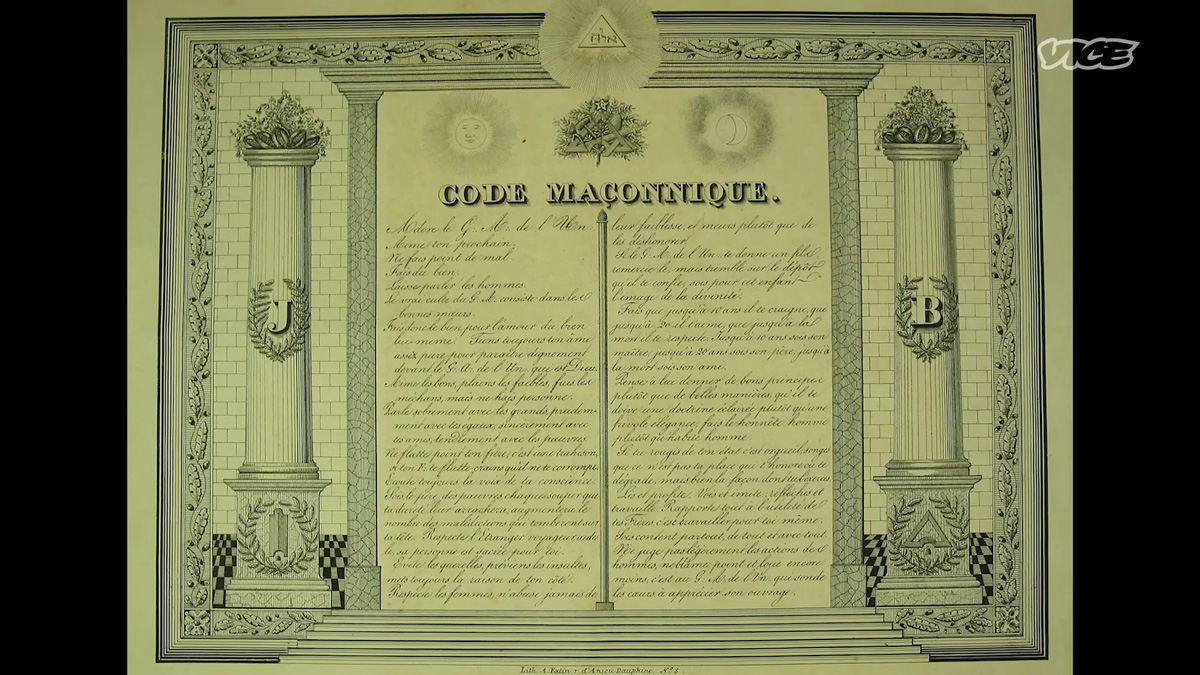 VICE
CODE MAÇONNIQUE.
Adore le G. A. de l'Un.
Aime ton prochain.
Ne fais point de mal.
Fais du bien.
Laisse parler les hommes.
Le vrai culte du G. A. consiste dans les
bonnes mœurs.
Fais donc le bien pour l'amour du bien
lui-même. Tiens toujours ton âme
assez pure pour paraître dignement
devant le G. A. de l'Un. qui est Dieu.
Aime les bons, plains les faibles, fuis les
méchans, mais ne hais personne.
Parle sobrement avec les grands, prudem-
ment avec tes égaux, sincèrement avec
tes amis, tendrement avec les pauvres.
Ne flatte point ton frère, c'est une trahison,
si ton F. te flatte, crains qu'il ne te corrompe.
Ecoute toujours la voix de ta conscience.
Sois le père des pauvres chaque soupir que
ta dureté leur arrachera, augmentera le
nombre des malédictions qui tomberont sur
ta tête. Respecte l'Etranger voyageur aide
le, sa personne est sacrée pour toi.
Evite les querelles, préviens les insultes,
mets toujours la raison de ton côté.
Respecte les femmes, n'abuse jamais de
leur faiblesse, et meurs plutôt que de
les déshonorer.
Si le G. A. de l'Un. te donne un fils,
remercie le, mais tremble sur le dépôt
qu'il te confie, sois pour cet enfant
l'image de la divinité.
Fais que jusqu'à 10 ans il te craigne, que
jusqu'à 20 il t'aime, que jusqu'à la
mort il te respecte. Jusqu'à 10 ans sois son
maître, jusqu'à 20 ans sois son père, jusqu'à
la mort sois son ami.
Pense à lui donner de bons principes
plutôt que de belles manières, qu'il te
doive une doctrine éclairée plutôt qu'une
frivole élégance, fais le honnête homme
plutôt qu'habile homme.
Si tu rougis de ton état c'est orgueil, songe
que ce n'est pas ta place qui t'honore ou te
dégrade, mais bien la façon dont tu l'exerces.
Lis et profite. Vois et imite; réfléchis et
travaille. Rapporte tout à l'utilité de
tes Frères, c'est travailler pour toi même.
Sois content partout, de tout et avec tout.
Ne juge pas légèrement les actions des
hommes, ne blâme point et loue encore
moins, c'est au G. A. de l'Un. qui sonde
les cœurs à apprécier son ouvrage.
J
B
Lith. A. Fatin, r. d'Anjou Dauphine, No. 8.